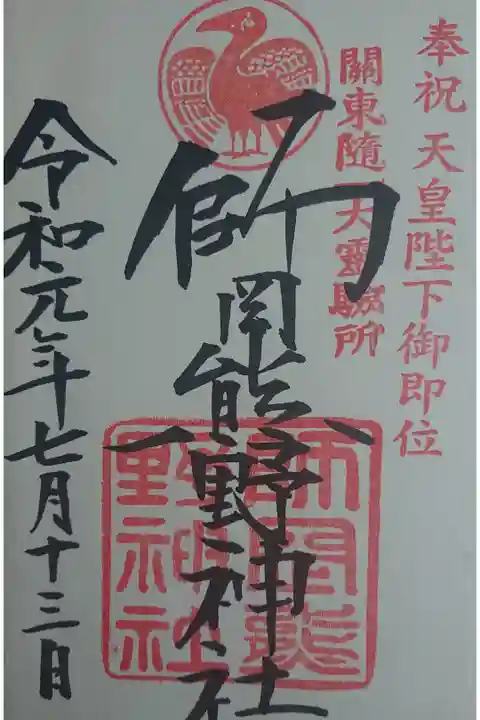 奉祝 天皇陛下御即位
關東隨一大靈驗所
師岡熊野神社
令和元年七月十三日
師岡熊
野神社